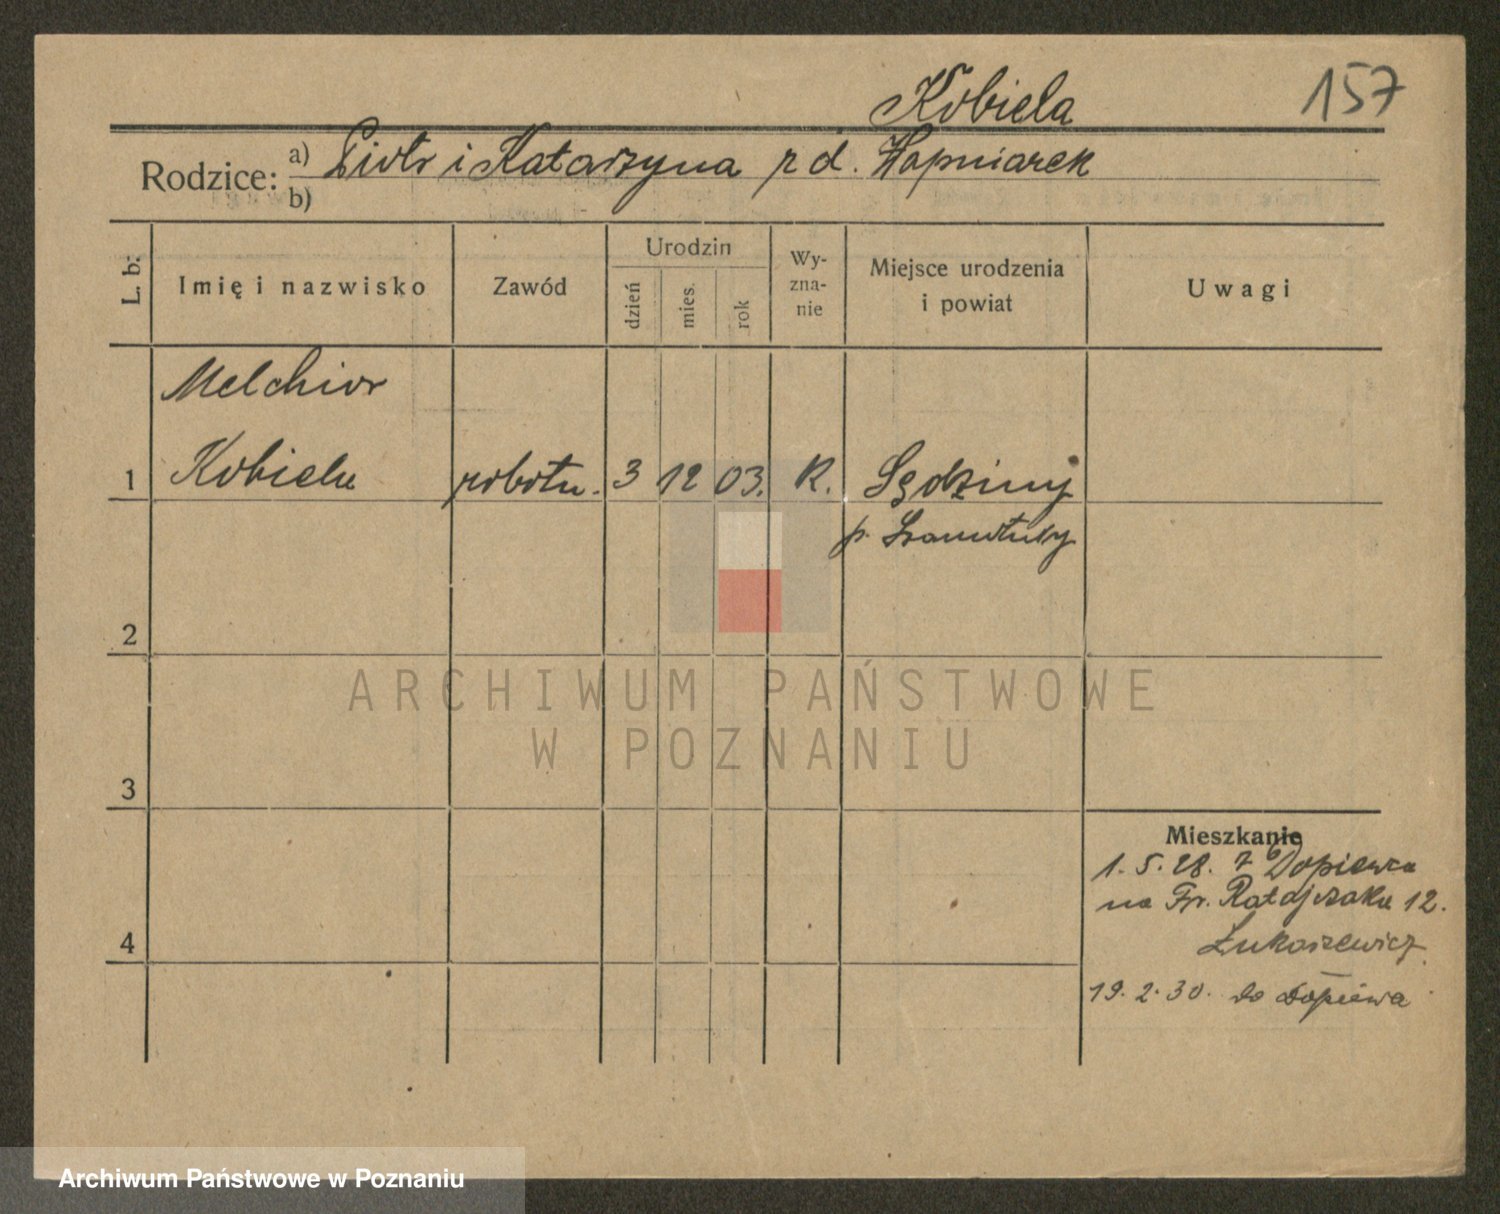 157
Kobiela
Rodzice: a) Piotr i Katarzyna r d. Wapniarek
b)
L. b: Imię i nazwisko Zawód Urodzin dzień mies. rok Wy-zna-nie Miejsce urodzenia i powiat Uwagi
Melchior
1 Kobiela robotn. 3 12 03. R. Sędziny
p. Szamotuły
2
ARCHIWUM PAŃSTWOWE
W POZNANIU
3
Mieszkanie
1. 5. 28. z Dopiewca
na Fr. Ratajczaka 12.
Łukaszewicz
4
19. 2. 30. do Dopiewa
Archiwum Państwowe w Poznaniu